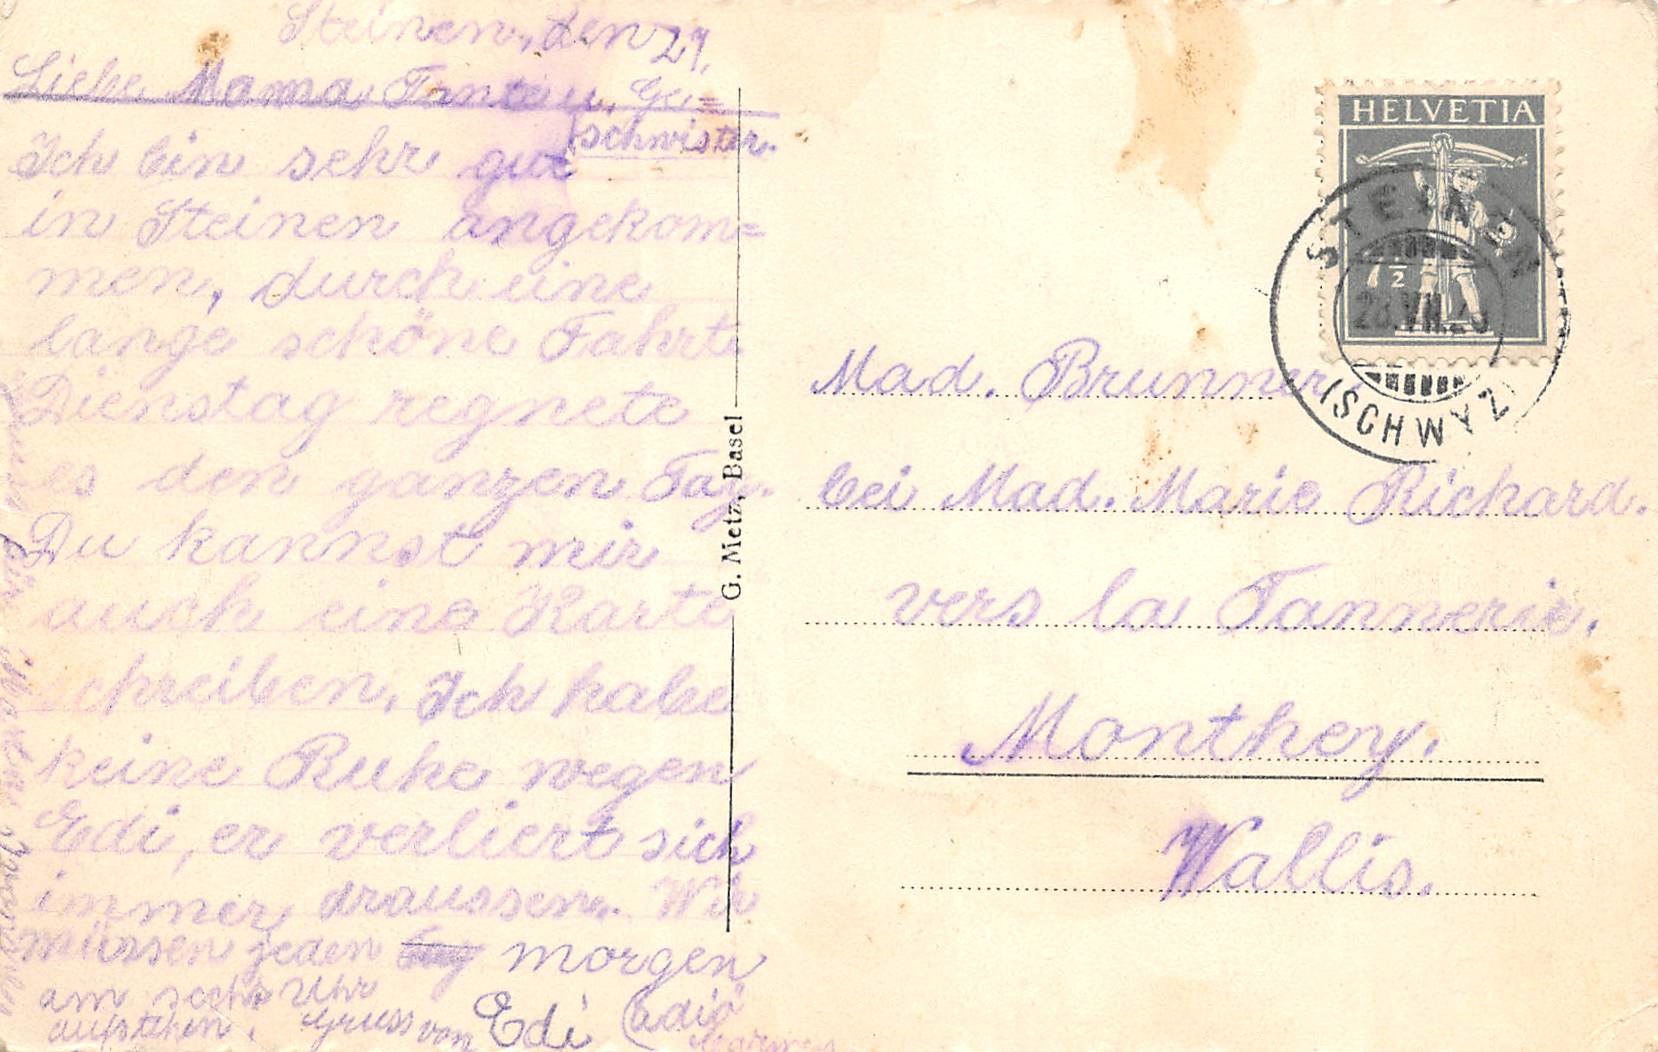 Steinen, den 27.
Liebe Mama Tante u. Ge=
schwister.
Ich bin sehr gut
in Steinen angekom=
men, durch eine
lange schöne Fahrt.
Dienstag regnete
es den ganzen Tag.
Du kannst mir
auch eine Karte
schreiben. Ich habe
keine Ruhe wegen
Edi, er verliert sich
immer draussen. Wir
müssen jeden Tag morgen
am sechs Uhr
aufstehen. Gruss von Edi
Adiö
Carmen
G. Metz, Basel
HELVETIA
7 1/2
STEINEN
28.VII.
(SCHWYZ)
Mad. Brunner
bei Mad. Marie Richard.
vers la Tannerie.
Monthey.
Wallis.